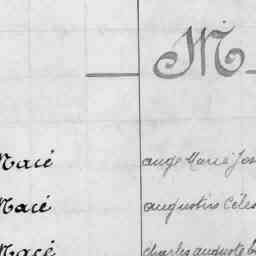 M
Macé ange Marie Jos
Macé augustin Céles
Macé charles auguste